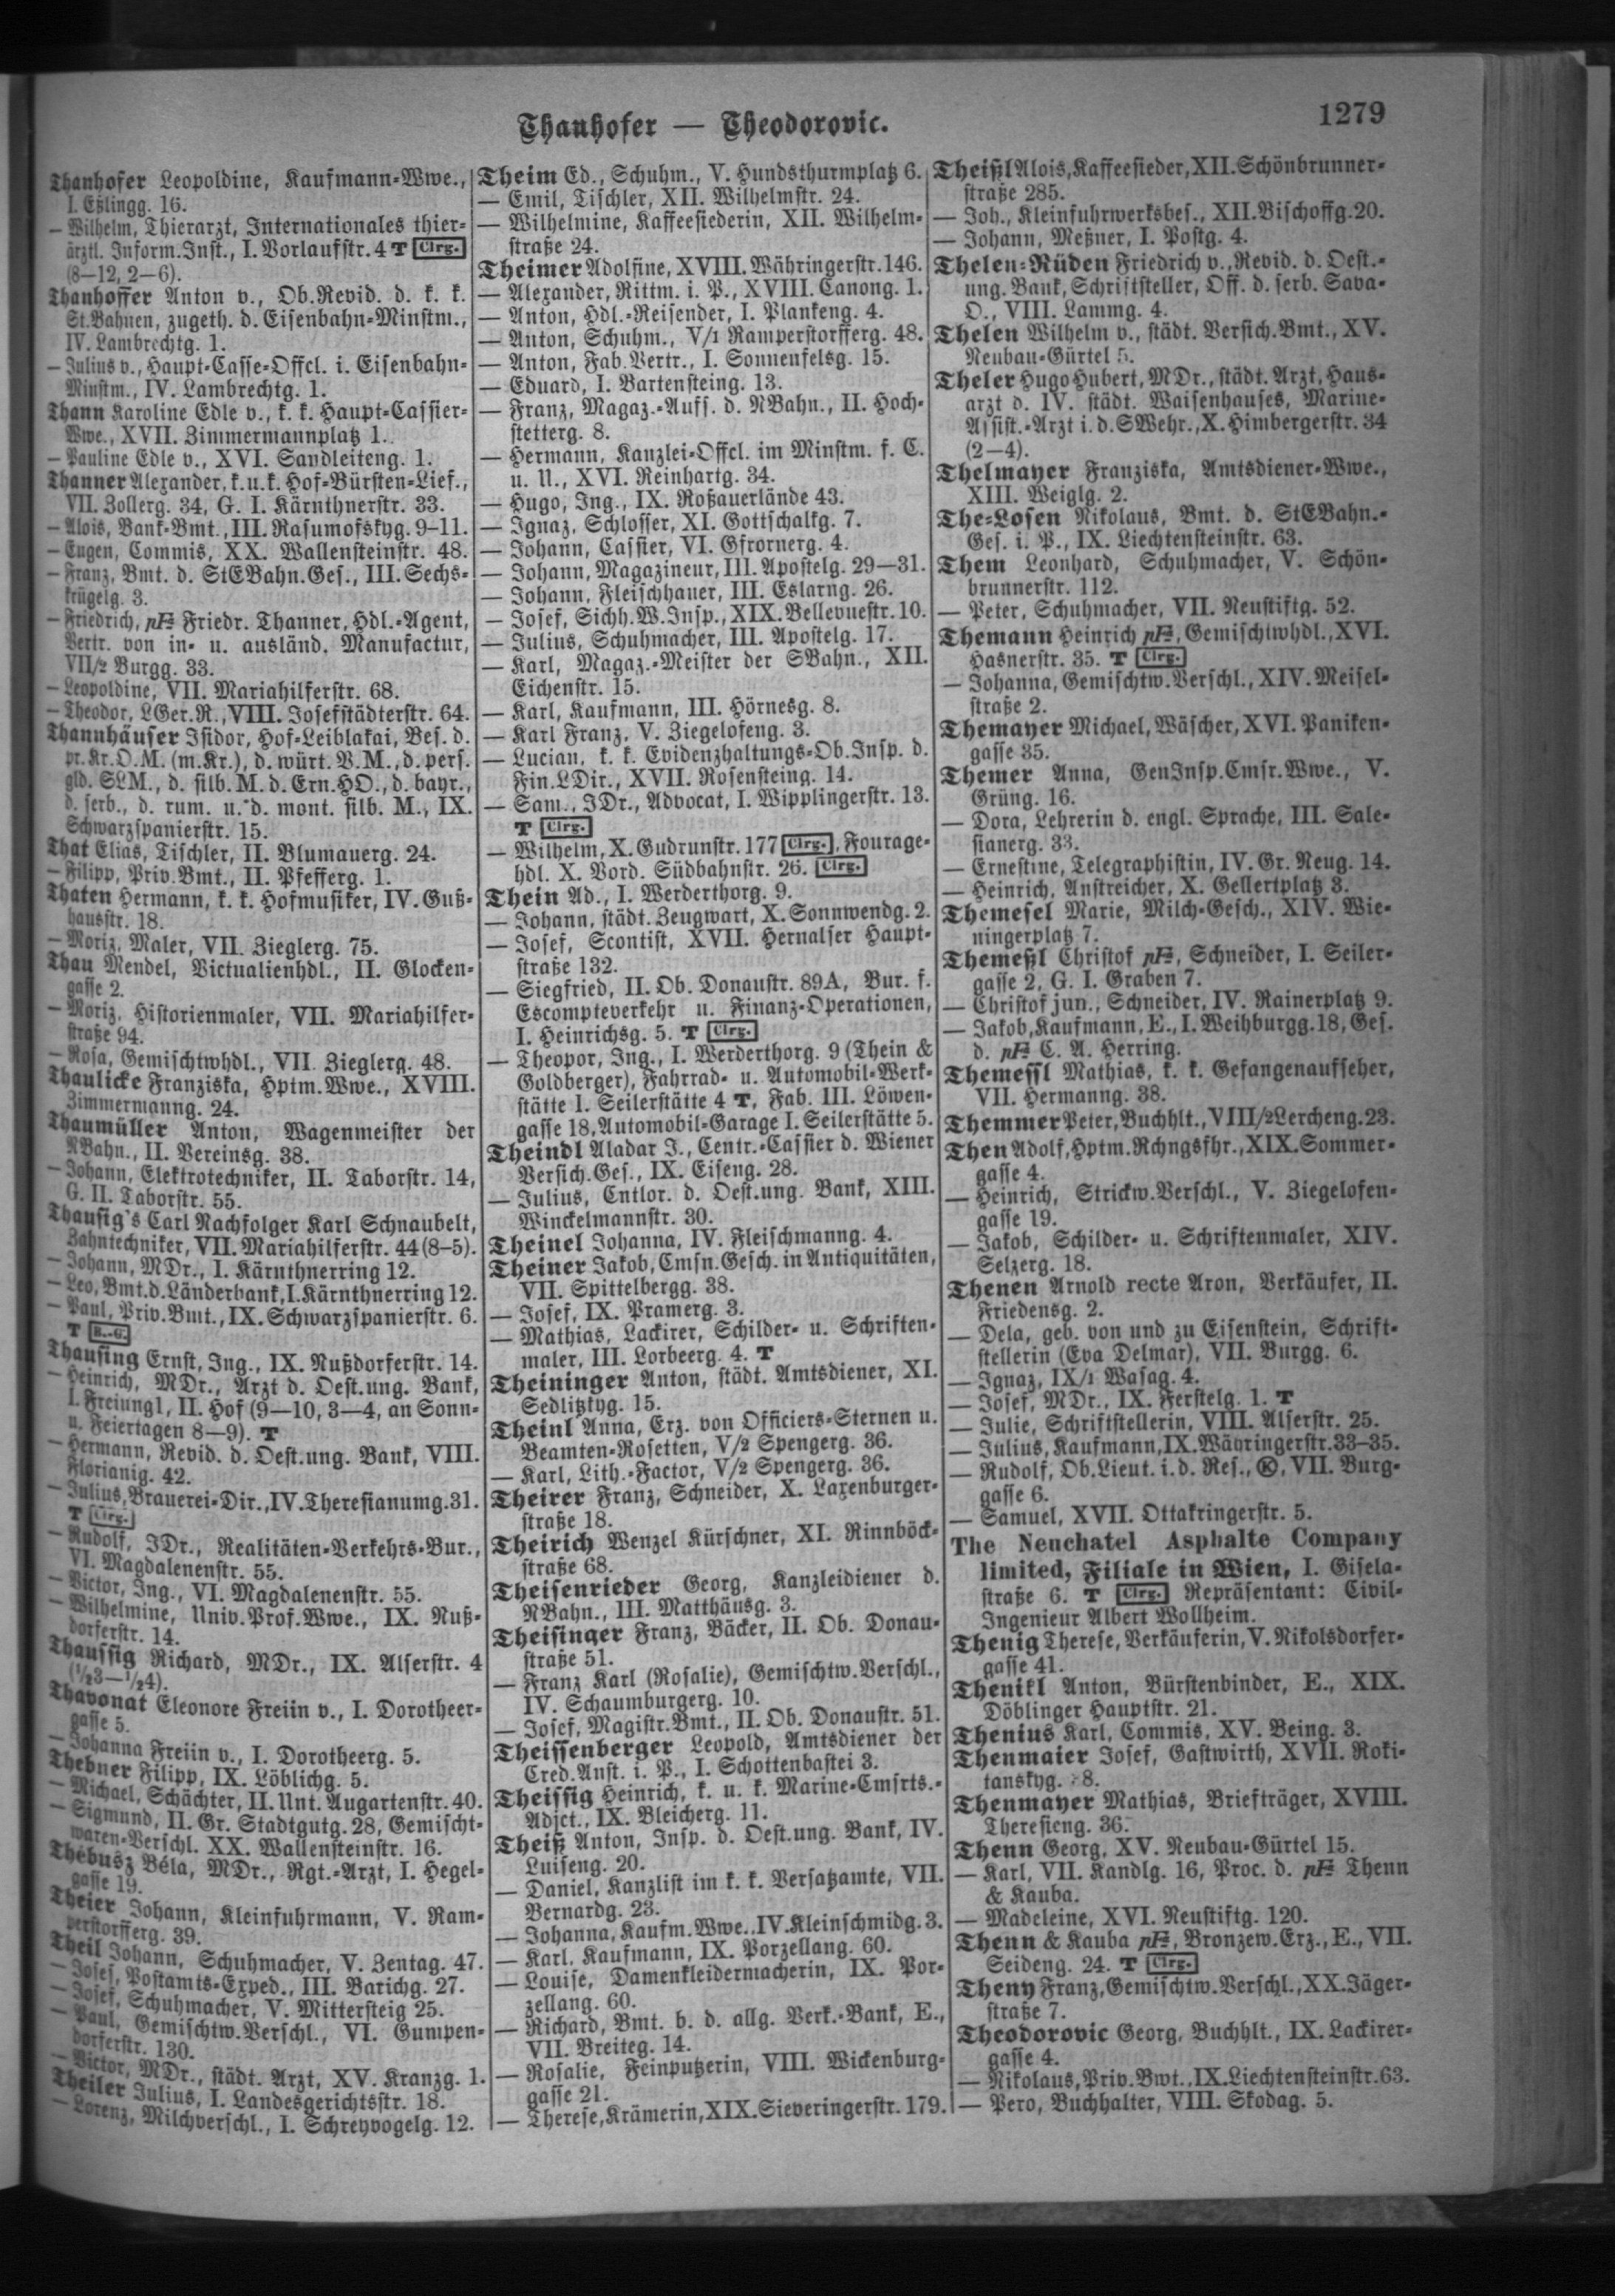 Thanhofer — Theodorovic.
1279
Thanhofer Leopoldine, Kaufmann-Wwe.,
I. Eßlingg. 16.
— Wilhelm, Thierarzt, Internationales thier-
ärztl. Inform.Inst., I. Vorlaufstr. 4 T Clrg.
(8—12, 2—6).
Thanhoffer Anton v., Ob.Revid. d. k. k.
St.Bahnen, zugeth. d. Eisenbahn-Minstm.,
IV. Lambrechtg. 1.
— Julius v., Haupt-Casse-Offcl. i. Eisenbahn-
Minstm., IV. Lambrechtg. 1.
Thann Karoline Edle v., k. k. Haupt-Cassier-
Wwe., XVII. Zimmermannplatz 1.
— Pauline Edle v., XVI. Sandleiteng. 1.
Thanner Alexander, k. u. k. Hof-Bürsten-Lief.,
VII. Zollerg. 34, G. I. Kärnthnerstr. 33.
— Alois, Bank-Bmt., III. Rasumofskyg. 9–11.
— Eugen, Commis, XX. Wallensteinstr. 48.
— Franz, Bmt. d. StEBahn.Ges., III. Sechs-
krügelg. 3.
— Friedrich, pF Friedr. Thanner, Hdl.-Agent,
Vertr. von in- u. ausländ. Manufactur,
VII/2 Burgg. 33.
— Leopoldine, VII. Mariahilferstr. 68.
— Theodor, LGer.R., VIII. Josefstädterstr. 64.
Thannhäuser Isidor, Hof-Leiblakai, Bes. d.
pr. Kr.O.M. (m.Kr.), d. würt. V.M., d. pers.
gld. SLM., d. silb. M. d. Ern.HO., d. bayr.,
d. serb., d. rum. u. d. mont. silb. M., IX.
Schwarzspanierstr. 15.
That Elias, Tischler, II. Blumauerg. 24.
— Filipp, Priv.Bmt., II. Pfefferg. 1.
Thaten Hermann, k. k. Hofmusiker, IV. Guß-
hausstr. 18.
— Moriz, Maler, VII. Zieglerg. 75.
Thau Mendel, Victualienhdl., II. Glocken-
gasse 2.
— Moriz, Historienmaler, VII. Mariahilfer-
straße 94.
— Rosa, Gemischtwhdl., VII. Zieglerg. 48.
Thaulicke Franziska, Hptm.Wwe., XVIII.
Zimmermanng. 24.
Thaumüller Anton, Wagenmeister der
NBahn., II. Vereinsg. 38.
— Johann, Elektrotechniker, II. Taborstr. 14,
G. II. Taborstr. 55.
Thausig's Carl Nachfolger Karl Schnaubelt,
Zahntechniker, VII. Mariahilferstr. 44 (8–5).
— Johann, MDr., I. Kärnthnerring 12.
— Leo, Bmt.d.Länderbank, I. Kärnthnerring 12.
— Paul, Priv.Bmt., IX. Schwarzspanierstr. 6.
T R.-G.
Thausing Ernst, Ing., IX. Nußdorferstr. 14.
— Heinrich, MDr., Arzt d. Oest.ung. Bank,
I. Freiung1, II. Hof (9—10, 3—4, an Sonn-
u. Feiertagen 8—9). T
— Hermann, Revid. d. Oest.ung. Bank, VIII.
Florianig. 42.
— Julius, Brauerei-Dir., IV. Theresianumg. 31.
T Clrg.
— Rudolf, JDr., Realitäten-Verkehrs-Bur.,
VI. Magdalenenstr. 55.
— Victor, Ing., VI. Magdalenenstr. 55.
— Wilhelmine, Univ.Prof.Wwe., IX. Nuß-
dorferstr. 14.
Thaussig Richard, MDr., IX. Alserstr. 4
(½3—½4).
Thavonat Eleonore Freiin v., I. Dorotheer-
gasse 5.
— Johanna Freiin v., I. Dorotheerg. 5.
Thebner Filipp, IX. Löblichg. 5.
— Michael, Schächter, II. Unt. Augartenstr. 40.
— Sigmund, II. Gr. Stadtgutg. 28, Gemischt-
waren-Verschl. XX. Wallensteinstr. 16.
Thébusz Béla, MDr., Rgt.-Arzt, I. Hegel-
gasse 19.
Theier Johann, Kleinfuhrmann, V. Ram-
perstorfferg. 39.
Theil Johann, Schuhmacher, V. Zentag. 47.
— Josef, Postamts-Exped., III. Barichg. 27.
— Josef, Schuhmacher, V. Mittersteig 25.
— Paul, Gemischtw.Verschl., VI. Gumpen-
dorferstr. 130.
— Victor, MDr., städt. Arzt, XV. Kranzg. 1.
Theiler Julius, I. Landesgerichtsstr. 18.
— Lorenz, Milchverschl., I. Schreyvogelg. 12.
Theim Ed., Schuhm., V. Hundsthurmplatz 6.
— Emil, Tischler, XII. Wilhelmstr. 24.
— Wilhelmine, Kaffeesiederin, XII. Wilhelm-
straße 24.
Theimer Adolfine, XVIII. Währingerstr. 146.
— Alexander, Rittm. i. P., XVIII. Canong. 1.
— Anton, Hdl.-Reisender, I. Plankeng. 4.
— Anton, Schuhm., V/1 Ramperstorfferg. 48.
— Anton, Fab.Vertr., I. Sonnenfelsg. 15.
— Eduard, I. Bartensteing. 13.
— Franz, Magaz.-Aufs. d. NBahn., II. Hoch-
stetterg. 8.
— Hermann, Kanzlei-Offcl. im Minstm. f. C.
u. U., XVI. Reinhartg. 34.
— Hugo, Ing., IX. Roßauerlände 43.
— Ignaz, Schlosser, XI. Gottschalkg. 7.
— Johann, Cassier, VI. Gfrornerg. 4.
— Johann, Magazineur, III. Apostelg. 29—31.
— Johann, Fleischhauer, III. Eslarng. 26.
— Josef, Sichh.W.Insp., XIX. Bellevuestr. 10.
— Julius, Schuhmacher, III. Apostelg. 17.
— Karl, Magaz.-Meister der SBahn., XII.
Eichenstr. 15.
— Karl, Kaufmann, III. Hörnesg. 8.
— Karl Franz, V. Ziegelofeng. 3.
— Lucian, k. k. Evidenzhaltungs-Ob.Insp. d.
Fin.LDir., XVII. Rosensteing. 14.
— Sam., JDr., Advocat, I. Wipplingerstr. 13.
T Clrg.
— Wilhelm, X. Gudrunstr. 177 Clrg., Fourage-
hdl. X. Vord. Südbahnstr. 26. Clrg.
Thein Ad., I. Werderthorg. 9.
— Johann, städt. Zeugwart, X. Sonnwendg. 2.
— Josef, Scontist, XVII. Hernalser Haupt-
straße 132.
— Siegfried, II. Ob. Donaustr. 89A, Bur. f.
Escompteverkehr u. Finanz-Operationen,
I. Heinrichsg. 5. T Clrg.
— Theopor, Ing., I. Werderthorg. 9 (Thein &
Goldberger), Fahrrad- u. Automobil-Werk-
stätte I. Seilerstätte 4 T, Fab. III. Löwen-
gasse 18, Automobil-Garage I. Seilerstätte 5.
Theindl Aladar J., Centr.-Cassier d. Wiener
Versich.Ges., IX. Eiseng. 28.
— Julius, Cntlor. d. Oest.ung. Bank, XIII.
Winckelmannstr. 30.
Theinel Johanna, IV. Fleischmanng. 4.
Theiner Jakob, Cmsn.Gesch. in Antiquitäten,
VII. Spittelbergg. 38.
— Josef, IX. Pramerg. 3.
— Mathias, Lackirer, Schilder- u. Schriften-
maler, III. Lorbeerg. 4. T
Theininger Anton, städt. Amtsdiener, XI.
Sedlitzkyg. 15.
Theinl Anna, Erz. von Officiers-Sternen u.
Beamten-Rosetten, V/2 Spengerg. 36.
— Karl, Lith.-Factor, V/2 Spengerg. 36.
Theirer Franz, Schneider, X. Laxenburger-
straße 18.
Theirich Wenzel Kürschner, XI. Rinnböck-
straße 68.
Theisenrieder Georg, Kanzleidiener d.
NBahn., III. Matthäusg. 3.
Theisinger Franz, Bäcker, II. Ob. Donau-
straße 51.
— Franz Karl (Rosalie), Gemischtw.Verschl.,
IV. Schaumburgerg. 10.
— Josef, Magistr.Bmt., II. Ob. Donaustr. 51.
Theissenberger Leopold, Amtsdiener der
Cred.Anst. i. P., I. Schottenbastei 3.
Theissig Heinrich, k. u. k. Marine-Cmsrts.-
Adjct., IX. Bleicherg. 11.
Theiß Anton, Insp. d. Oest.ung. Bank, IV.
Luiseng. 20.
— Daniel, Kanzlist im k. k. Versatzamte, VII.
Bernardg. 23.
— Johanna, Kaufm.Wwe., IV. Kleinschmidg. 3.
— Karl, Kaufmann, IX. Porzellang. 60.
— Louise, Damenkleidermacherin, IX. Por-
zellang. 60.
— Richard, Bmt. b. d. allg. Verk.-Bank, E.,
VII. Breiteg. 14.
— Rosalie, Feinputzerin, VIII. Wickenburg-
gasse 21.
— Therese, Krämerin, XIX. Sieveringerstr. 179.
Theißl Alois, Kaffeesieder, XII. Schönbrunner-
straße 285.
— Joh., Kleinfuhrwerksbes., XII. Bischoffg. 20.
— Johann, Meßner, I. Postg. 4.
Thelen-Rüden Friedrich v., Revid. d. Oest.-
ung. Bank, Schriftsteller, Off. d. serb. Sava-
O., VIII. Lammg. 4.
Thelen Wilhelm v., städt. Versich.Bmt., XV.
Neubau-Gürtel 5.
Theler Hugo Hubert, MDr., städt. Arzt, Haus-
arzt d. IV. städt. Waisenhauses, Marine-
Assist.-Arzt i. d. SWehr., X. Himbergerstr. 34
(2—4).
Thelmayer Franziska, Amtsdiener-Wwe.,
XIII. Weiglg. 2.
The-Losen Nikolaus, Bmt. d. StEBahn.-
Ges. i. P., IX. Liechtensteinstr. 63.
Them Leonhard, Schuhmacher, V. Schön-
brunnerstr. 112.
— Peter, Schuhmacher, VII. Neustiftg. 52.
Themann Heinrich pF, Gemischtwhdl., XVI.
Hasnerstr. 35. T Clrg.
— Johanna, Gemischtw.Verschl., XIV. Meisel-
straße 2.
Themayer Michael, Wäscher, XVI. Paniken-
gasse 35.
Themer Anna, GenInsp.Cmsr.Wwe., V.
Grüng. 16.
— Dora, Lehrerin d. engl. Sprache, III. Sale-
sianerg. 33.
— Ernestine, Telegraphistin, IV. Gr. Neug. 14.
— Heinrich, Anstreicher, X. Gellertplatz 3.
Themesel Marie, Milch-Gesch., XIV. Wie-
ningerplatz 7.
Themeßl Christof pF, Schneider, I. Seiler-
gasse 2, G. I. Graben 7.
— Christof jun., Schneider, IV. Rainerplatz 9.
— Jakob, Kaufmann, E., I. Weihburgg. 18, Ges.
d. pF C. A. Herring.
Themessl Mathias, k. k. Gefangenaufseher,
VII. Hermanng. 38.
Themmer Peter, Buchhlt., VIII/2 Lercheng. 23.
Then Adolf, Hptm.Rchngsfhr., XIX. Sommer-
gasse 4.
— Heinrich, Strickw.Verschl., V. Ziegelofen-
gasse 19.
— Jakob, Schilder- u. Schriftenmaler, XIV.
Selzerg. 18.
Thenen Arnold recte Aron, Verkäufer, II.
Friedensg. 2.
— Dela, geb. von und zu Eisenstein, Schrift-
stellerin (Eva Delmar), VII. Burgg. 6.
— Ignaz, IX/1 Wasag. 4.
— Josef, MDr., IX. Ferstelg. 1. T
— Julie, Schriftstellerin, VIII. Alserstr. 25.
— Julius, Kaufmann, IX. Währingerstr. 33–35.
— Rudolf, Ob.Lieut. i. d. Res., Ⓚ, VII. Burg-
gasse 6.
— Samuel, XVII. Ottakringerstr. 5.
The Neuchatel Asphalte Company
limited, Filiale in Wien, I. Gisela-
straße 6. T Clrg. Repräsentant: Civil-
Ingenieur Albert Wollheim.
Thenig Therese, Verkäuferin, V. Nikolsdorfer-
gasse 41.
Thenikl Anton, Bürstenbinder, E., XIX.
Döblinger Hauptstr. 21.
Thenius Karl, Commis, XV. Being. 3.
Thenmaier Josef, Gastwirth, XVII. Roki-
tanskyg. 8.
Thenmayer Mathias, Briefträger, XVIII.
Theresieng. 36.
Thenn Georg, XV. Neubau-Gürtel 15.
— Karl, VII. Kandlg. 16, Proc. d. pF Thenn
& Kauba.
— Madeleine, XVI. Neustiftg. 120.
Thenn & Kauba pF, Bronzew.Erz., E., VII.
Seideng. 24. T Clrg.
Theny Franz, Gemischtw.Verschl., XX. Jäger-
straße 7.
Theodorovic Georg, Buchhlt., IX. Lackirer-
gasse 4.
— Nikolaus, Priv.Bmt., IX. Liechtensteinstr. 63.
— Pero, Buchhalter, VIII. Skodag. 5.